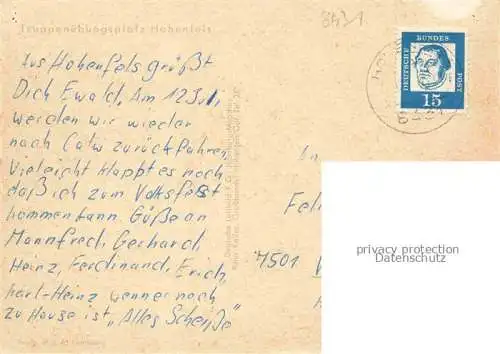 Truppenübungsplatz Hohenfels
8431
Aus Hohenfels grüßt
Dich Ewald. Am 12 Juli
werden wir wieder
nach Calw zurückfahren
Vieleicht klappt es noch
daß ich zum Volksfest
kommen kann. Grüße an
Mannfred, Gerhard
Heinz, Ferdinand, Erich,
Karl-Heinz wenner noch
zu Hause ist „Alles Scheiße"
DEUTSCHE BUNDES POST
15
An
7501
privacy protection
Datenschutz